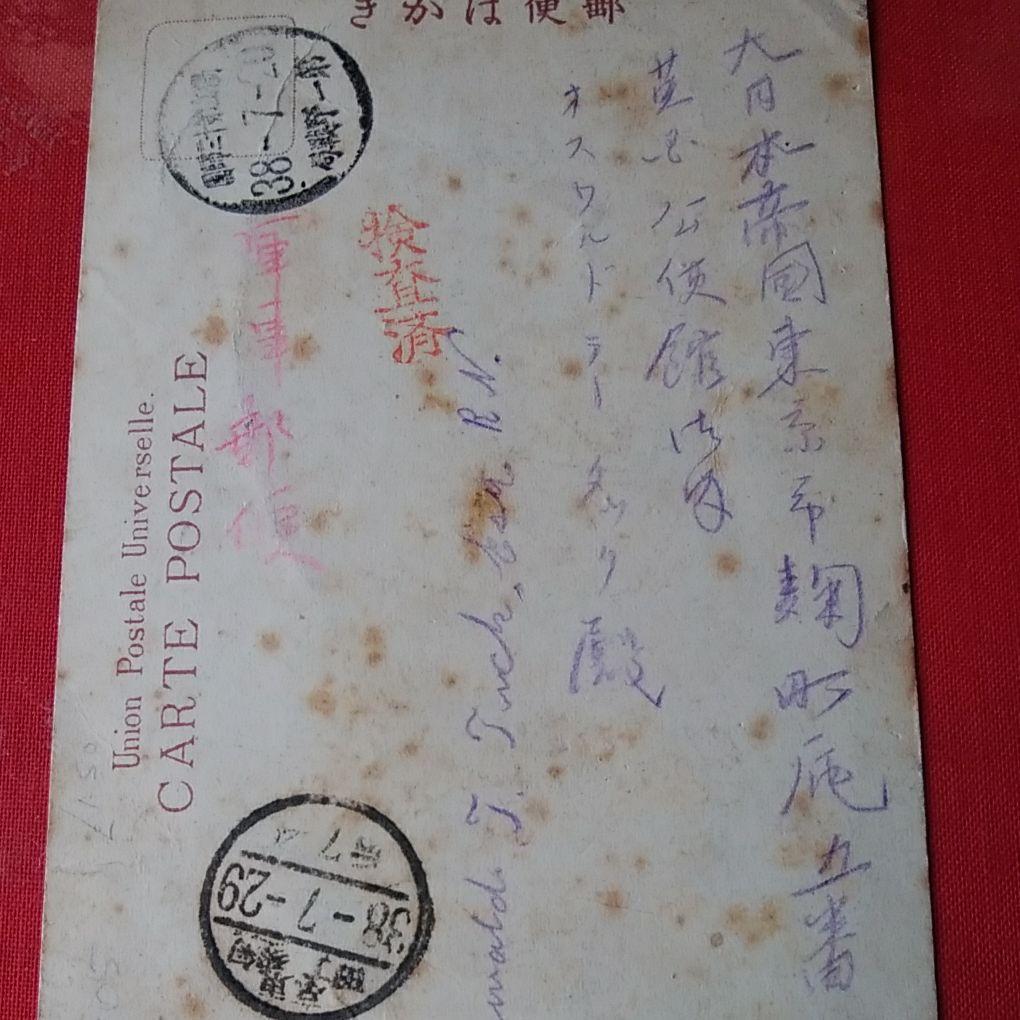 郵便はかき
大日本帝國東京市麹町區五番
英国公使館
オスワルド テー タック殿
T. Tuck, Esq. R.N.
検査済
軍事郵便
Union Postale Universelle.
CARTE POSTALE
38-7-20
38-7-29